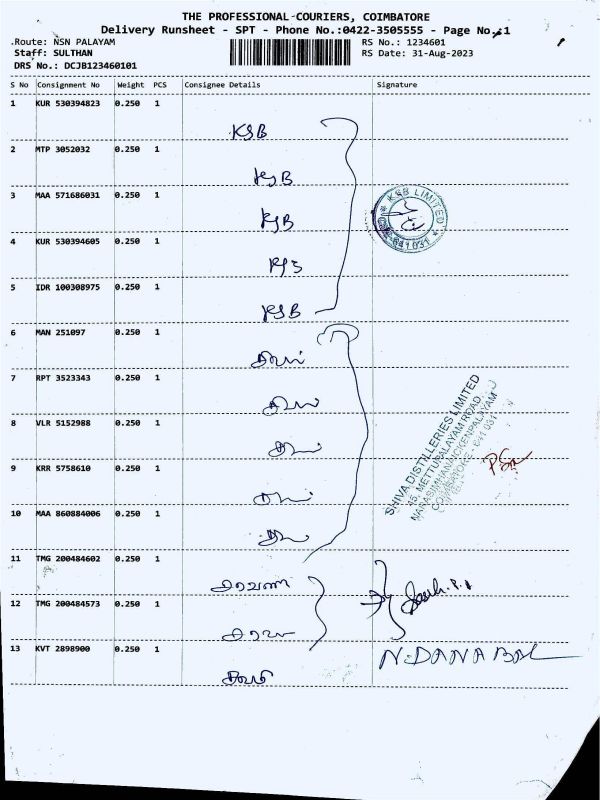 THE PROFESSIONAL COURIERS, COIMBATORE
Delivery Runsheet - SPT - Phone No.:0422-3505555 - Page No.:1
Route: NSN PALAYAM
RS No.: 1234601
Staff: SULTHAN
RS Date: 31-Aug-2023
DRS No.: DCJB123460101
S No Consignment No Weight PCS Consignee Details Signature
1 KUR 530394823 0.250 1
KSB
2 MTP 3052032 0.250 1
KSB
3 MAA 571686031 0.250 1
KSB
KSB LIMITED
641 031
4 KUR 530394605 0.250 1
KSB
5 IDR 100308975 0.250 1
KSB
6 MAN 251097 0.250 1
7 RPT 3523343 0.250 1
8 VLR 5152988 0.250 1
9 KRR 5758610 0.250 1
10 MAA 860884006 0.250 1
SHIVA DISTILLERIES LIMITED
45, METTUPALAYAM ROAD,
NARASIMHANAICKENPALAYAM
COIMBATORE - 641 031
11 TMG 200484602 0.250 1
சரவண
12 TMG 200484573 0.250 1
13 KVT 2898900 0.250 1
N.DANABAL